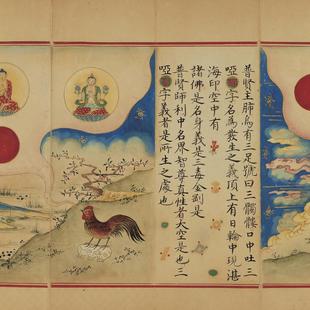 普賢主肺鳥有三足號曰三髑髏口中吐三
啞字名為發生之義頂上有日輪中現湛
海印空中有
諸佛是名身義其三毒金剛是
普賢師利中名界智尊真性者大空是也三
啞字義者是所生之處也